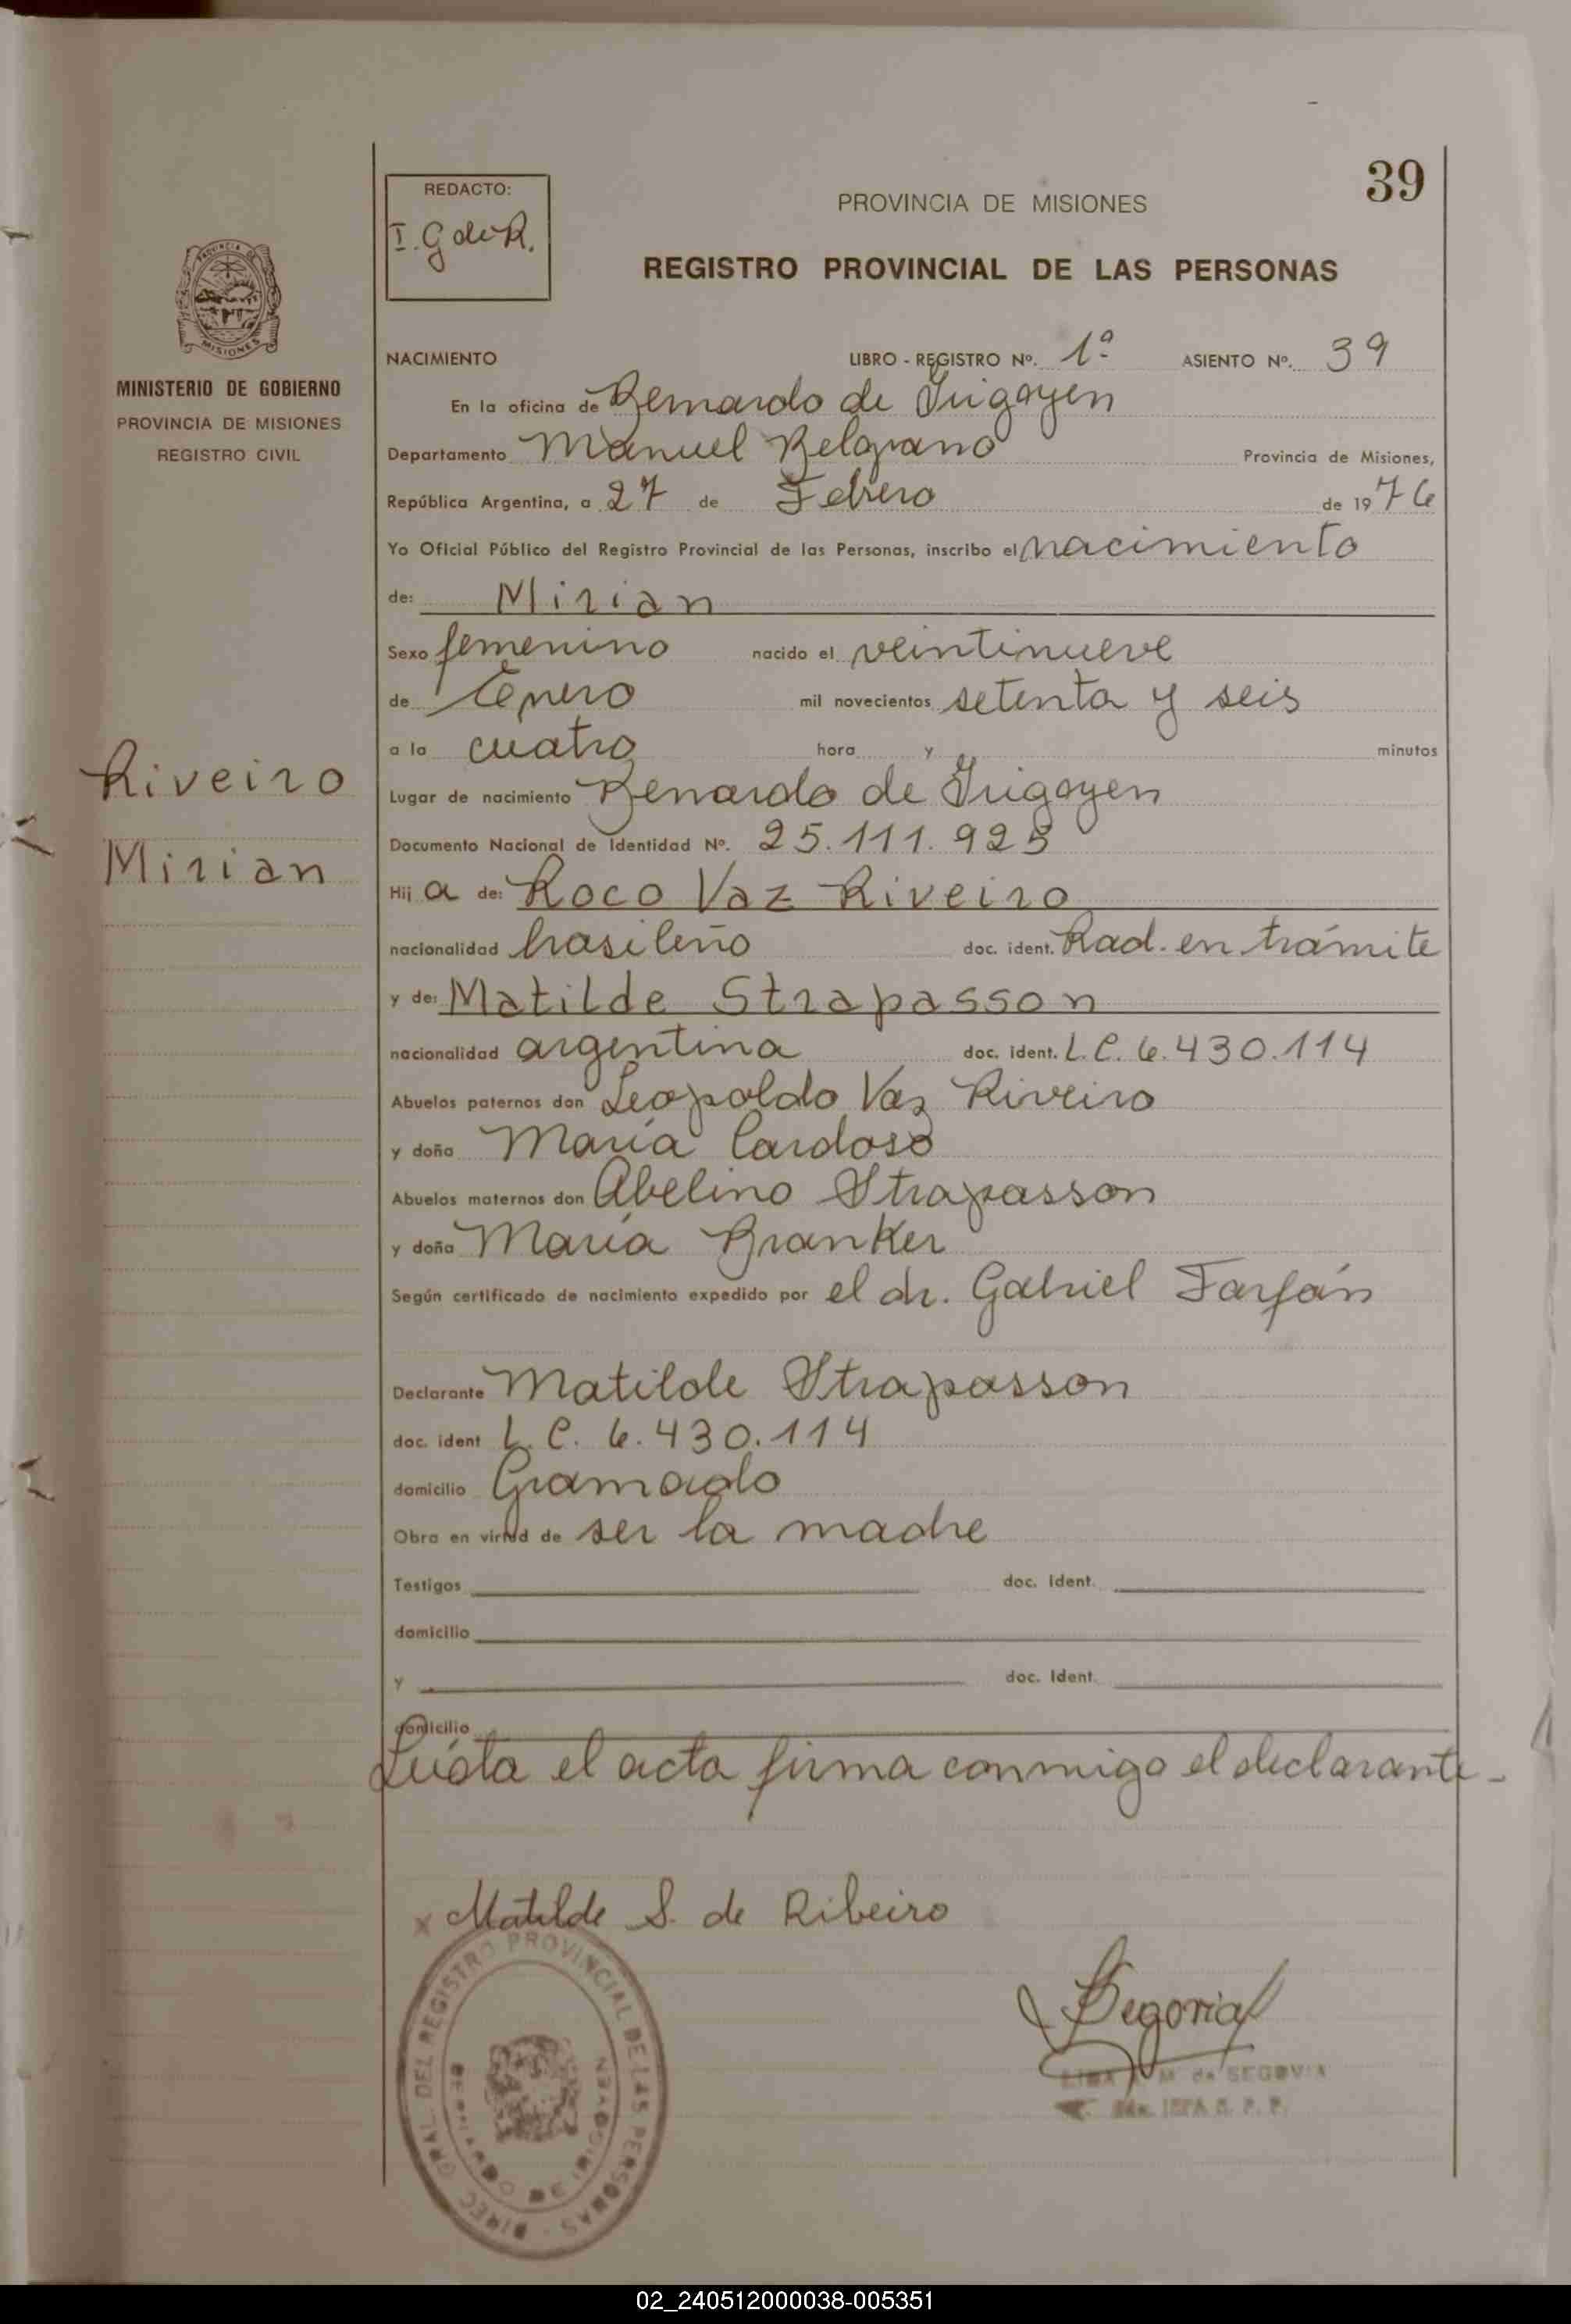 39
REDACTO:
I. G de R.
PROVINCIA DE MISIONES
REGISTRO PROVINCIAL DE LAS PERSONAS
PROVINCIA
MISIONES
MINISTERIO DE GOBIERNO
PROVINCIA DE MISIONES
REGISTRO CIVIL
NACIMIENTO LIBRO - REGISTRO Nº. 1º ASIENTO Nº. 39
En la oficina de Bernardo de Irigoyen
Departamento Manuel Belgrano Provincia de Misiones,
República Argentina, a 27 de Febrero de 1976
Yo Oficial Público del Registro Provincial de las Personas, inscribo el nacimiento
de: Mirian
Sexo femenino nacido el veintinueve
de Enero mil novecientos setenta y seis
a la cuatro hora y minutos
Riveiro
Mirian
Lugar de nacimiento Bernardo de Irigoyen
Documento Nacional de Identidad Nº. 25.111.925
Hij a de: Roco Vaz Riveiro
nacionalidad brasileño doc. ident. Rad. en trámite
y de: Matilde Strapasson
nacionalidad argentina doc. ident. L.C. 6.430.114
Abuelos paternos don Leopoldo Vaz Riveiro
y doña María Cardoso
Abuelos maternos don Abelino Strapasson
y doña María Branker
Según certificado de nacimiento expedido por el dr. Gabriel Farfán
Declarante Matilde Strapasson
doc. ident L.C. 6.430.114
domicilio Gramado
Obra en virtud de ser la madre
Testigos doc. ident.
domicilio
y doc. ident.
domicilio
Leída el acta firma conmigo el declarante-
x Matilde S. de Ribeiro
Segovia
M. de SEGOVIA
DIREC. GRAL. DEL REGISTRO PROVINCIAL DE LAS PERSONAS
BERNARDO DE IRIGOYEN
02_240512000038-005351